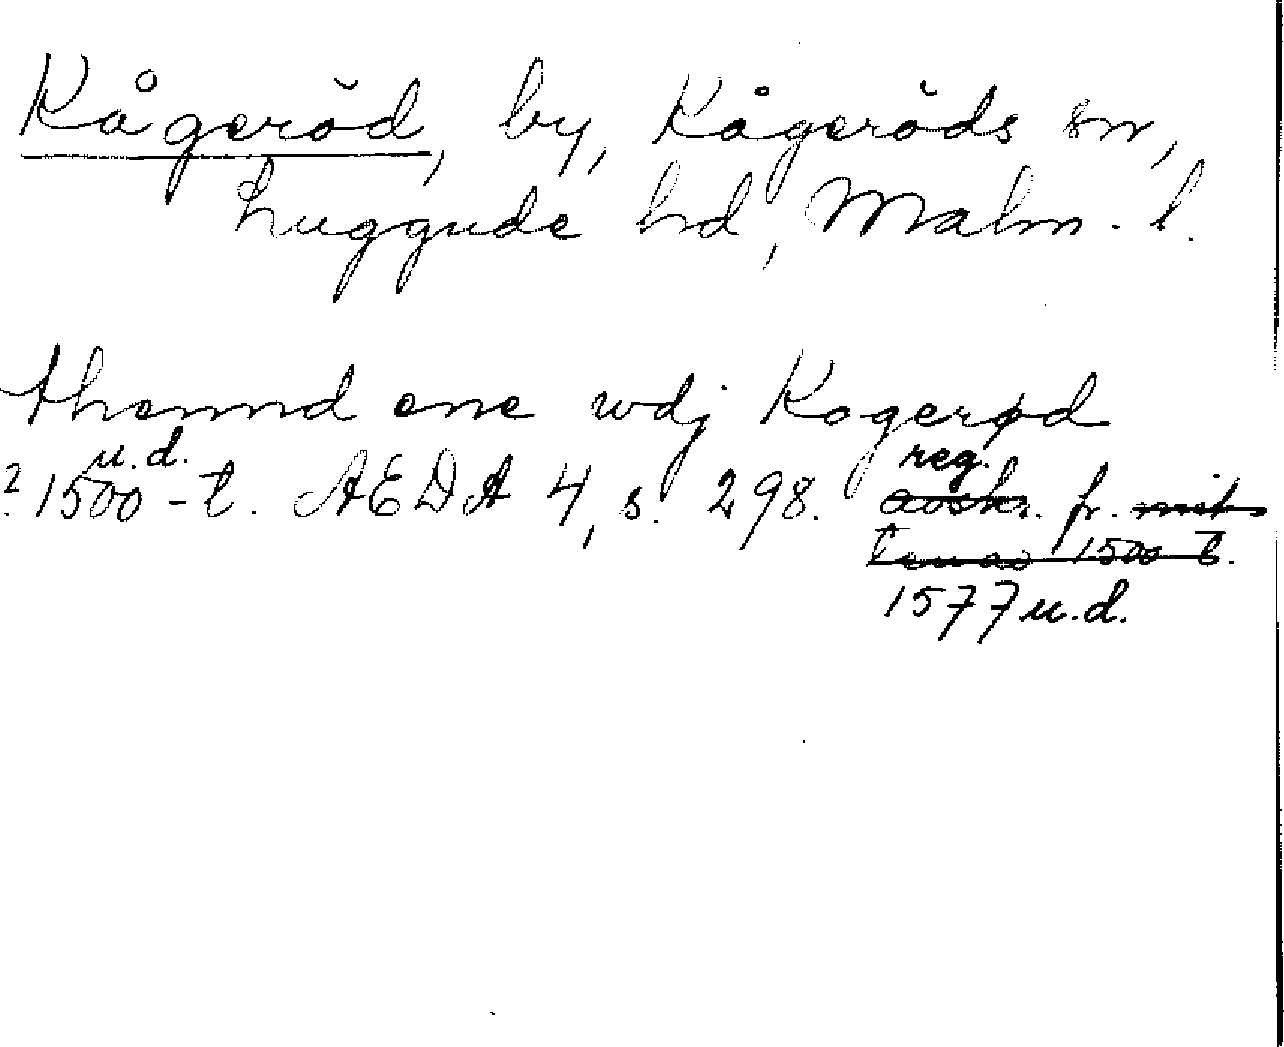 Kågeröd, by, Kågeröds sn,
Luggude hd, Malm. l.
thennd ene wdj Kogerød
u.d. reg.
? 1500-t. AEDA 4, s. 298. avskr. fr. mit
1500 t.
1577 u.d.